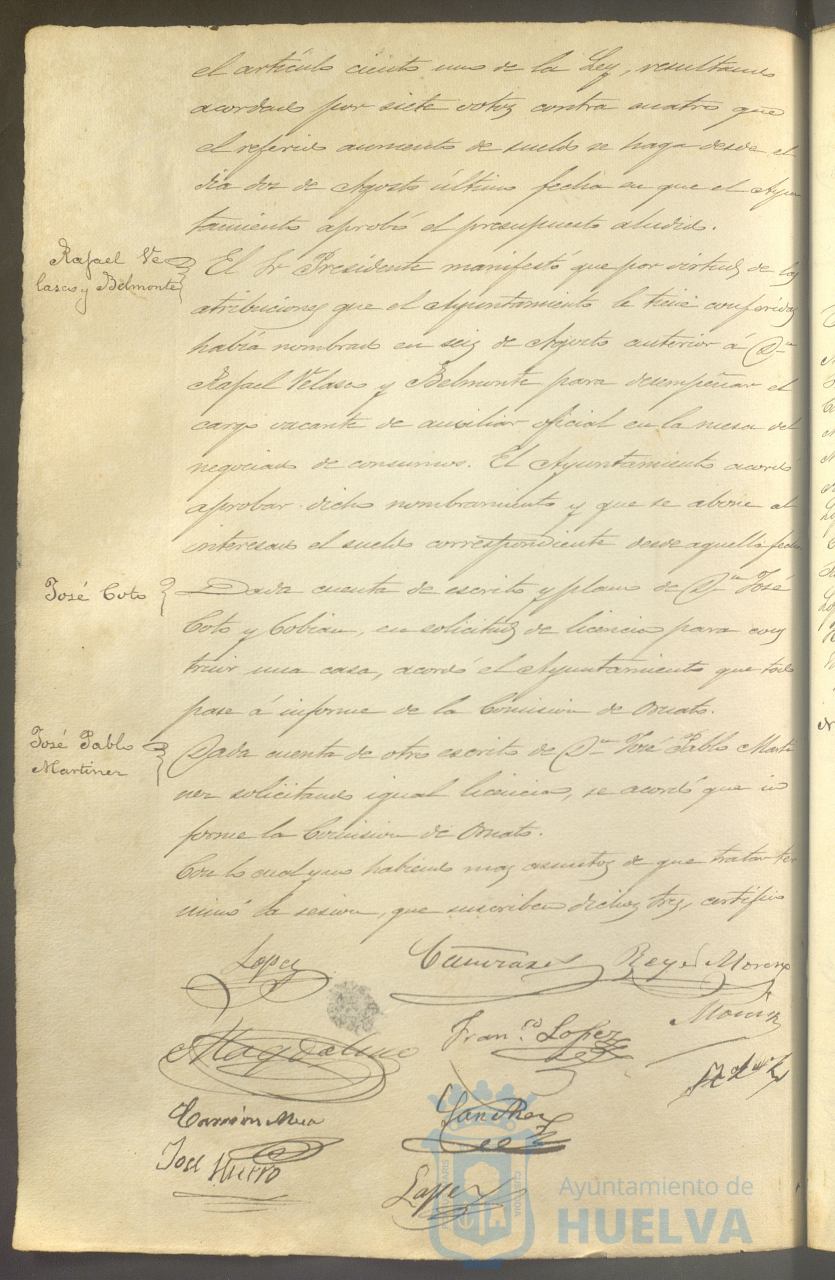 el artículo ciento uno de la Ley, resultando
acordado por siete votos contra cuatro que
el referido aumento de sueldo se haga desde el
día dos de Agosto último fecha en que el Ayun
tamiento aprobó el presupuesto aludido.
Rafael Ve
lasco y Belmonte
El Sr Presidente manifestó que por virtud de las
atribuciones que el Ayuntamiento le tiene conferidas
había nombrado en seis de Agosto anterior á Dn
Rafael Velasco y Belmonte para desempeñar el
cargo vacante de auxiliar oficial en la mesa del
negociado de consumos. El Ayuntamiento acordó
aprobar dicho nombramiento y que se abone al
interesado el sueldo correspondiente desde aquella fecha
José Coto
Dada cuenta de escrito y plano de Dn José
Coto y Cobian, en solicitud de licencia para cons
truir una casa, acordó el Ayuntamiento que todo
pase á informe de la Comision de Ornato.
José Pablo
Martinez
Dada cuenta de otro escrito de Dn José Pablo Marti
nez solicitando igual licencia, se acordó que in
forme la Comision de Ornato.
Con lo cual y no habiendo mas asuntos de que tratar ter
minó la sesion, que suscriben dichos tres, certifico
Lopez
Reyes Moreno
Magdaleno
Franco Lopez
Sanchez
José Hierro
Lopez
Ayuntamiento de
HUELVA